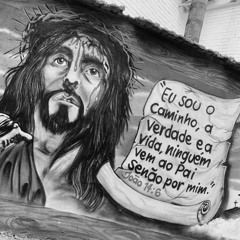 "EU SOU O
CAMINHO, A
VERDADE E A
VIDA, NINGUEM
VEM AO PAI
SENÃO POR MIM."
João 14:6